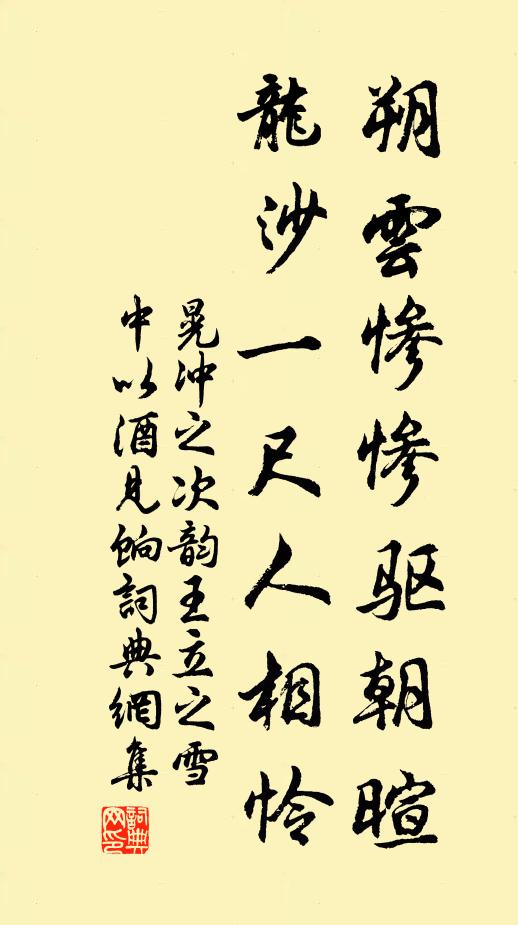 朔雲慘慘驱朝暄
龍沙一尺人相怜
晁沖之次韵王立之雪
中以酒見餉詞典網集
詞典
网印